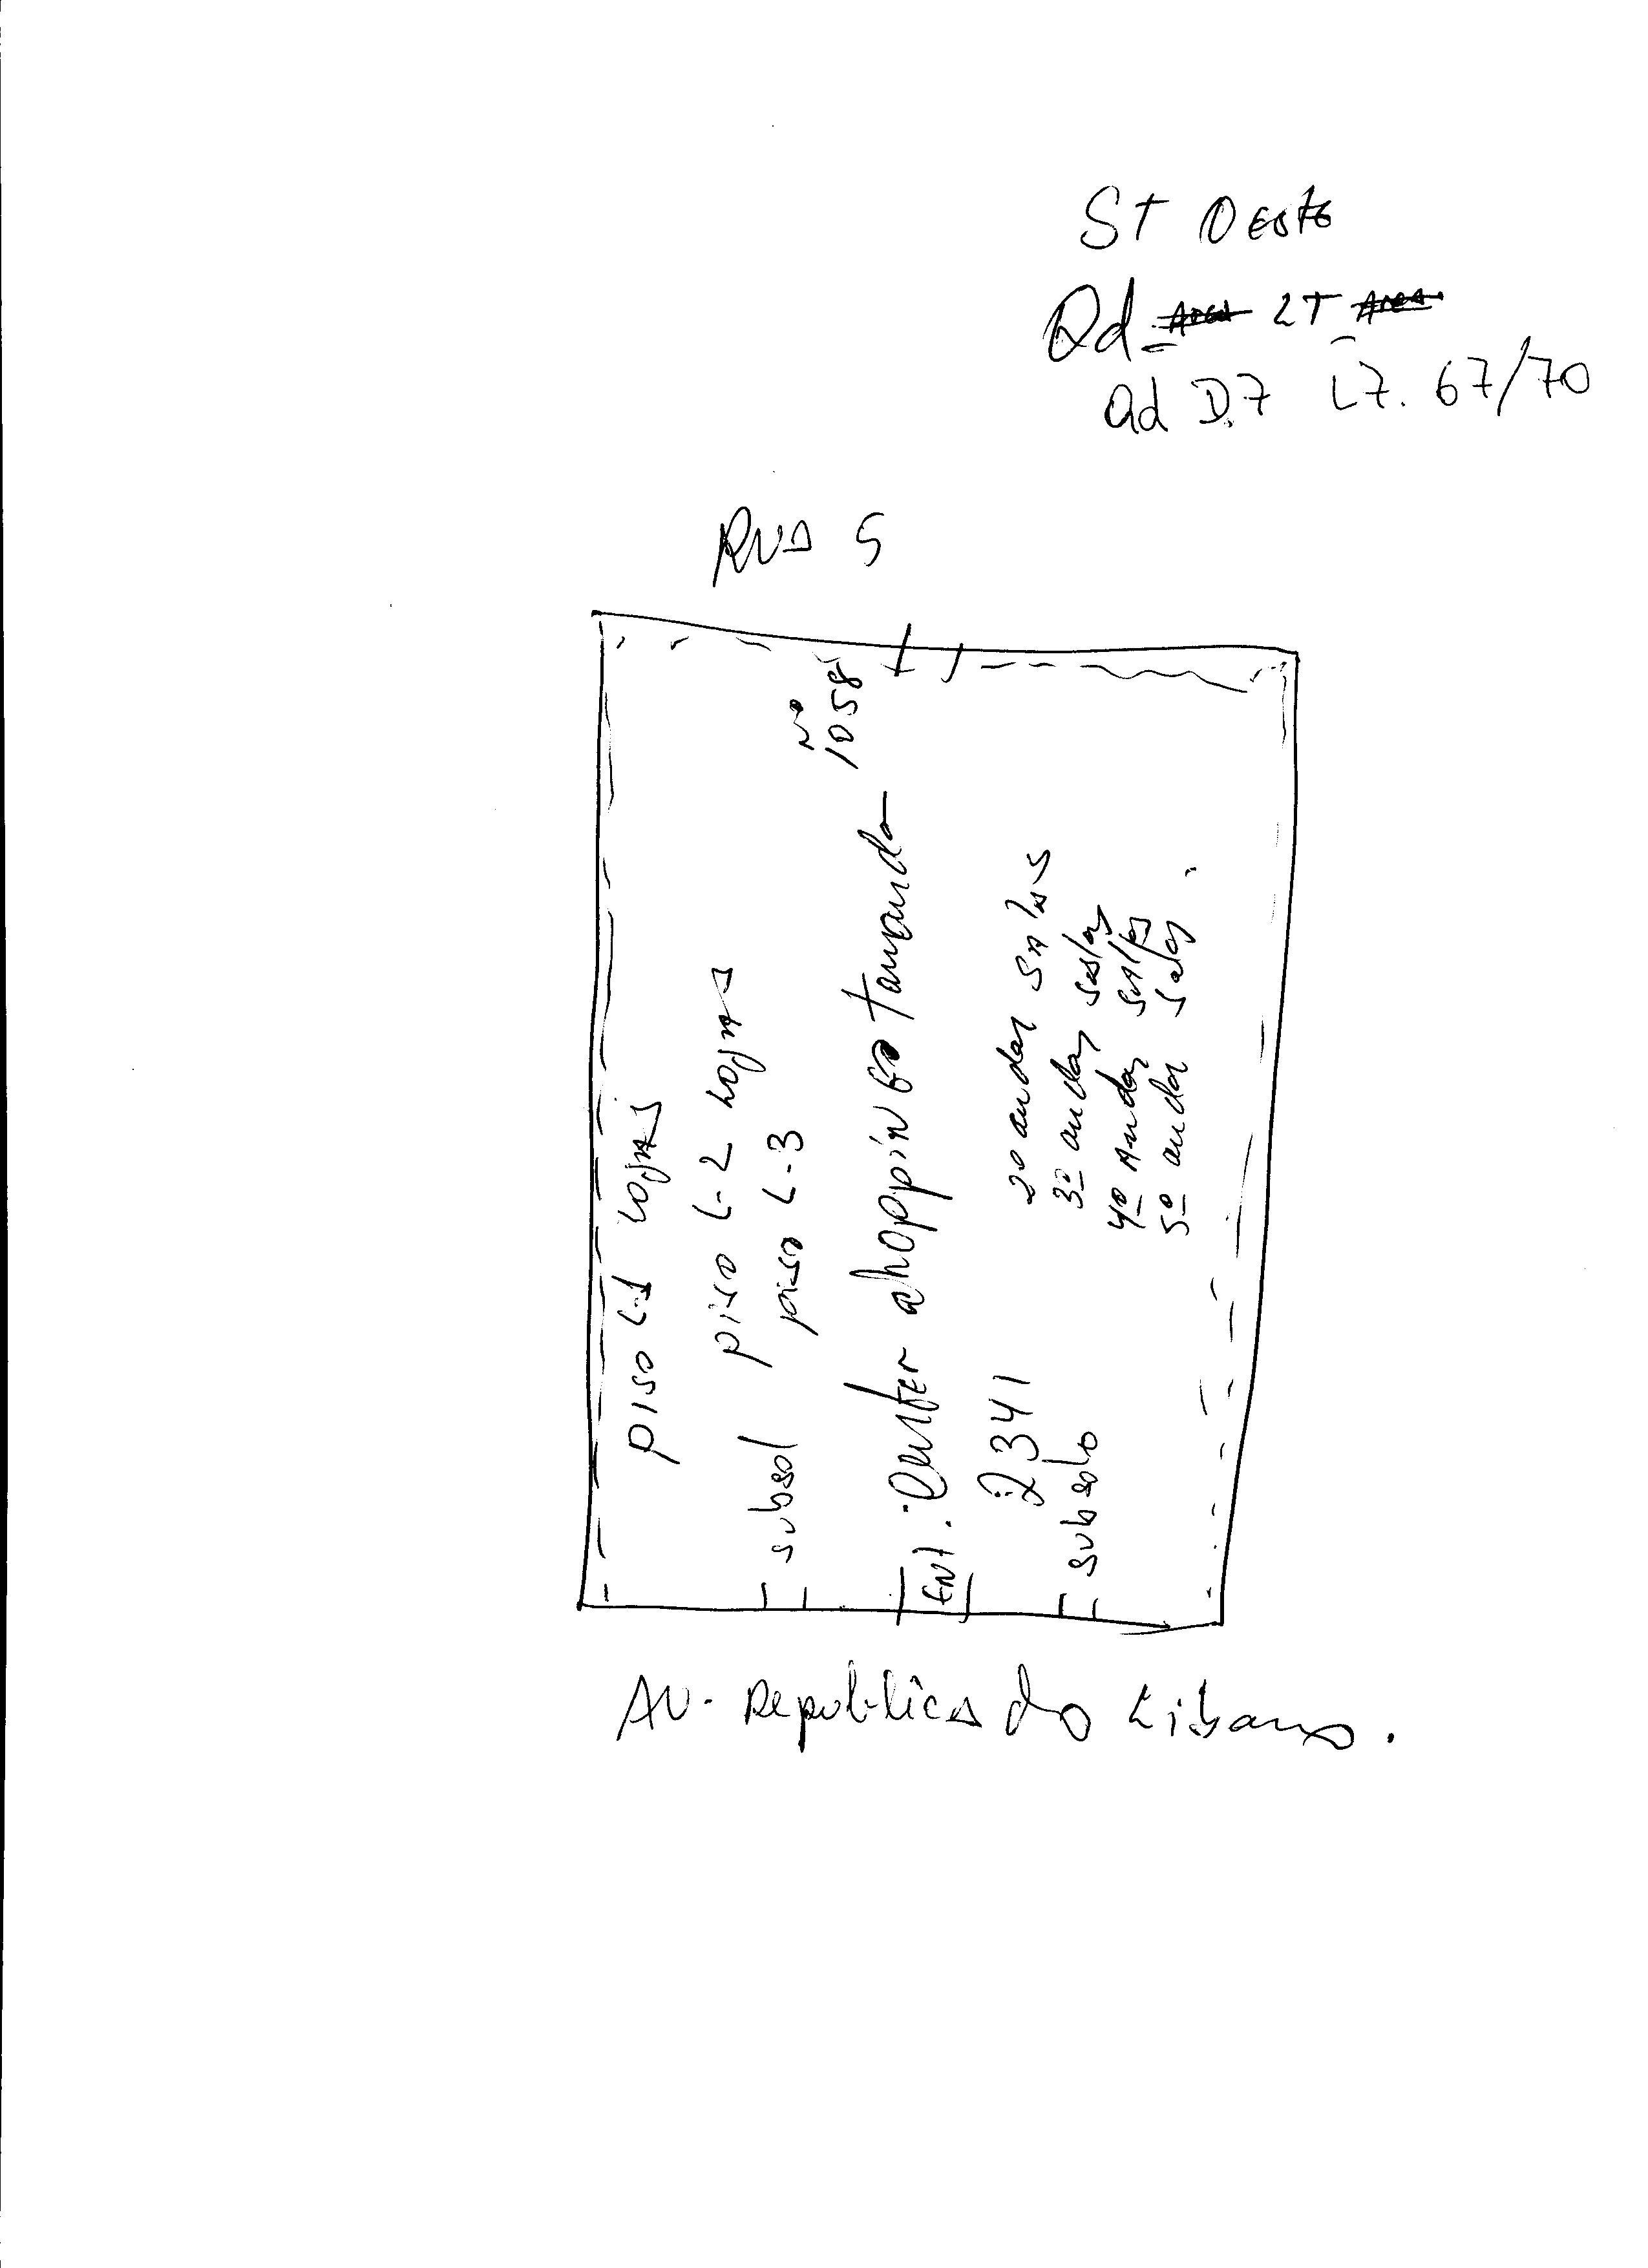 ST OESTE
Qd LT
Qd D.7 LT. 67/70
RUA 5
Nº
1058
piso L-1 Lojas
piso L-2 Lojas
subsol piso L-3
Ent. Center shoppin tamanda
2341
subsolo
2º andar SALAS
3º andar salas
4º Andar salas
5º andar salas
AV. Republica do Libano.